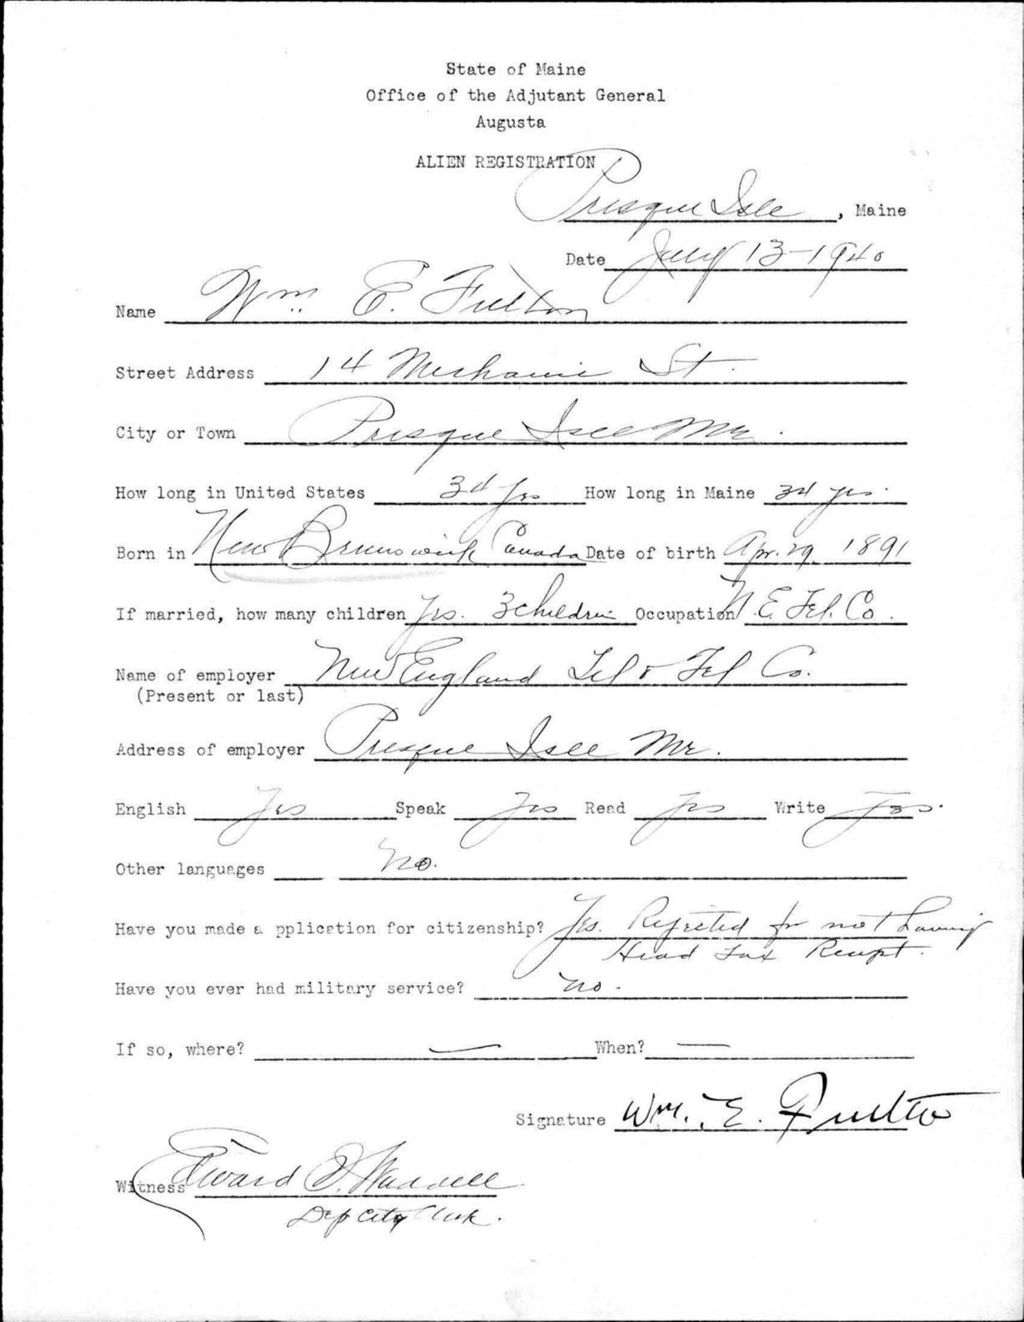 State of Maine
Office of the Adjutant General
Augusta
ALIEN REGISTRATION
Presque Isle, Maine
Date July 13-1940
Name Wm. E. Fulton
Street Address 14 Mechanic St.
City or Town Presque Isle Me.
How long in United States 34 yrs How long in Maine 34 yrs.
Born in New Brunswick Canada Date of birth Apr. 29, 1891
If married, how many children Yes. 3 children Occupation N.E. Tel. Co.
Name of employer New England Tel & Tel Co.
(Present or last)
Address of employer Presque Isle Me.
English Yes Speak Yes Read Yes Write Yes.
Other languages No.
Have you made a pplication for citizenship? Yes. Rejected for not having
Head Tax Receipt.
Have you ever had military service? No.
If so, where? — When? —
Signature Wm. E. Fulton
Witness Edward
Dep City Clerk.